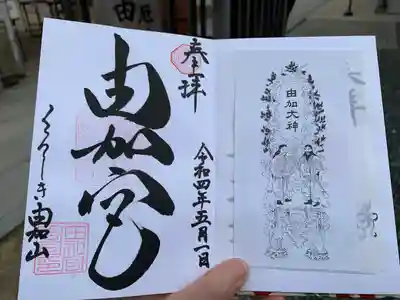 奉拝
令和四年五月一日
由加宮
くらしき由加山
由加大神